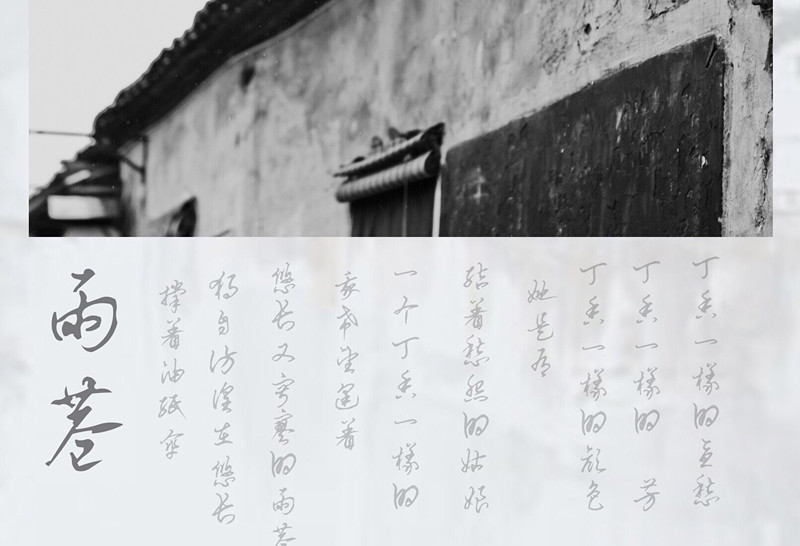 雨巷
撑着油纸伞
独自彷徨在悠长
悠长又寂寥的雨巷
我希望逢着
一个丁香一樣的
结着愁怨的姑娘
她是有
丁香一樣的颜色
丁香一樣的 芳
丁香一樣的忧愁